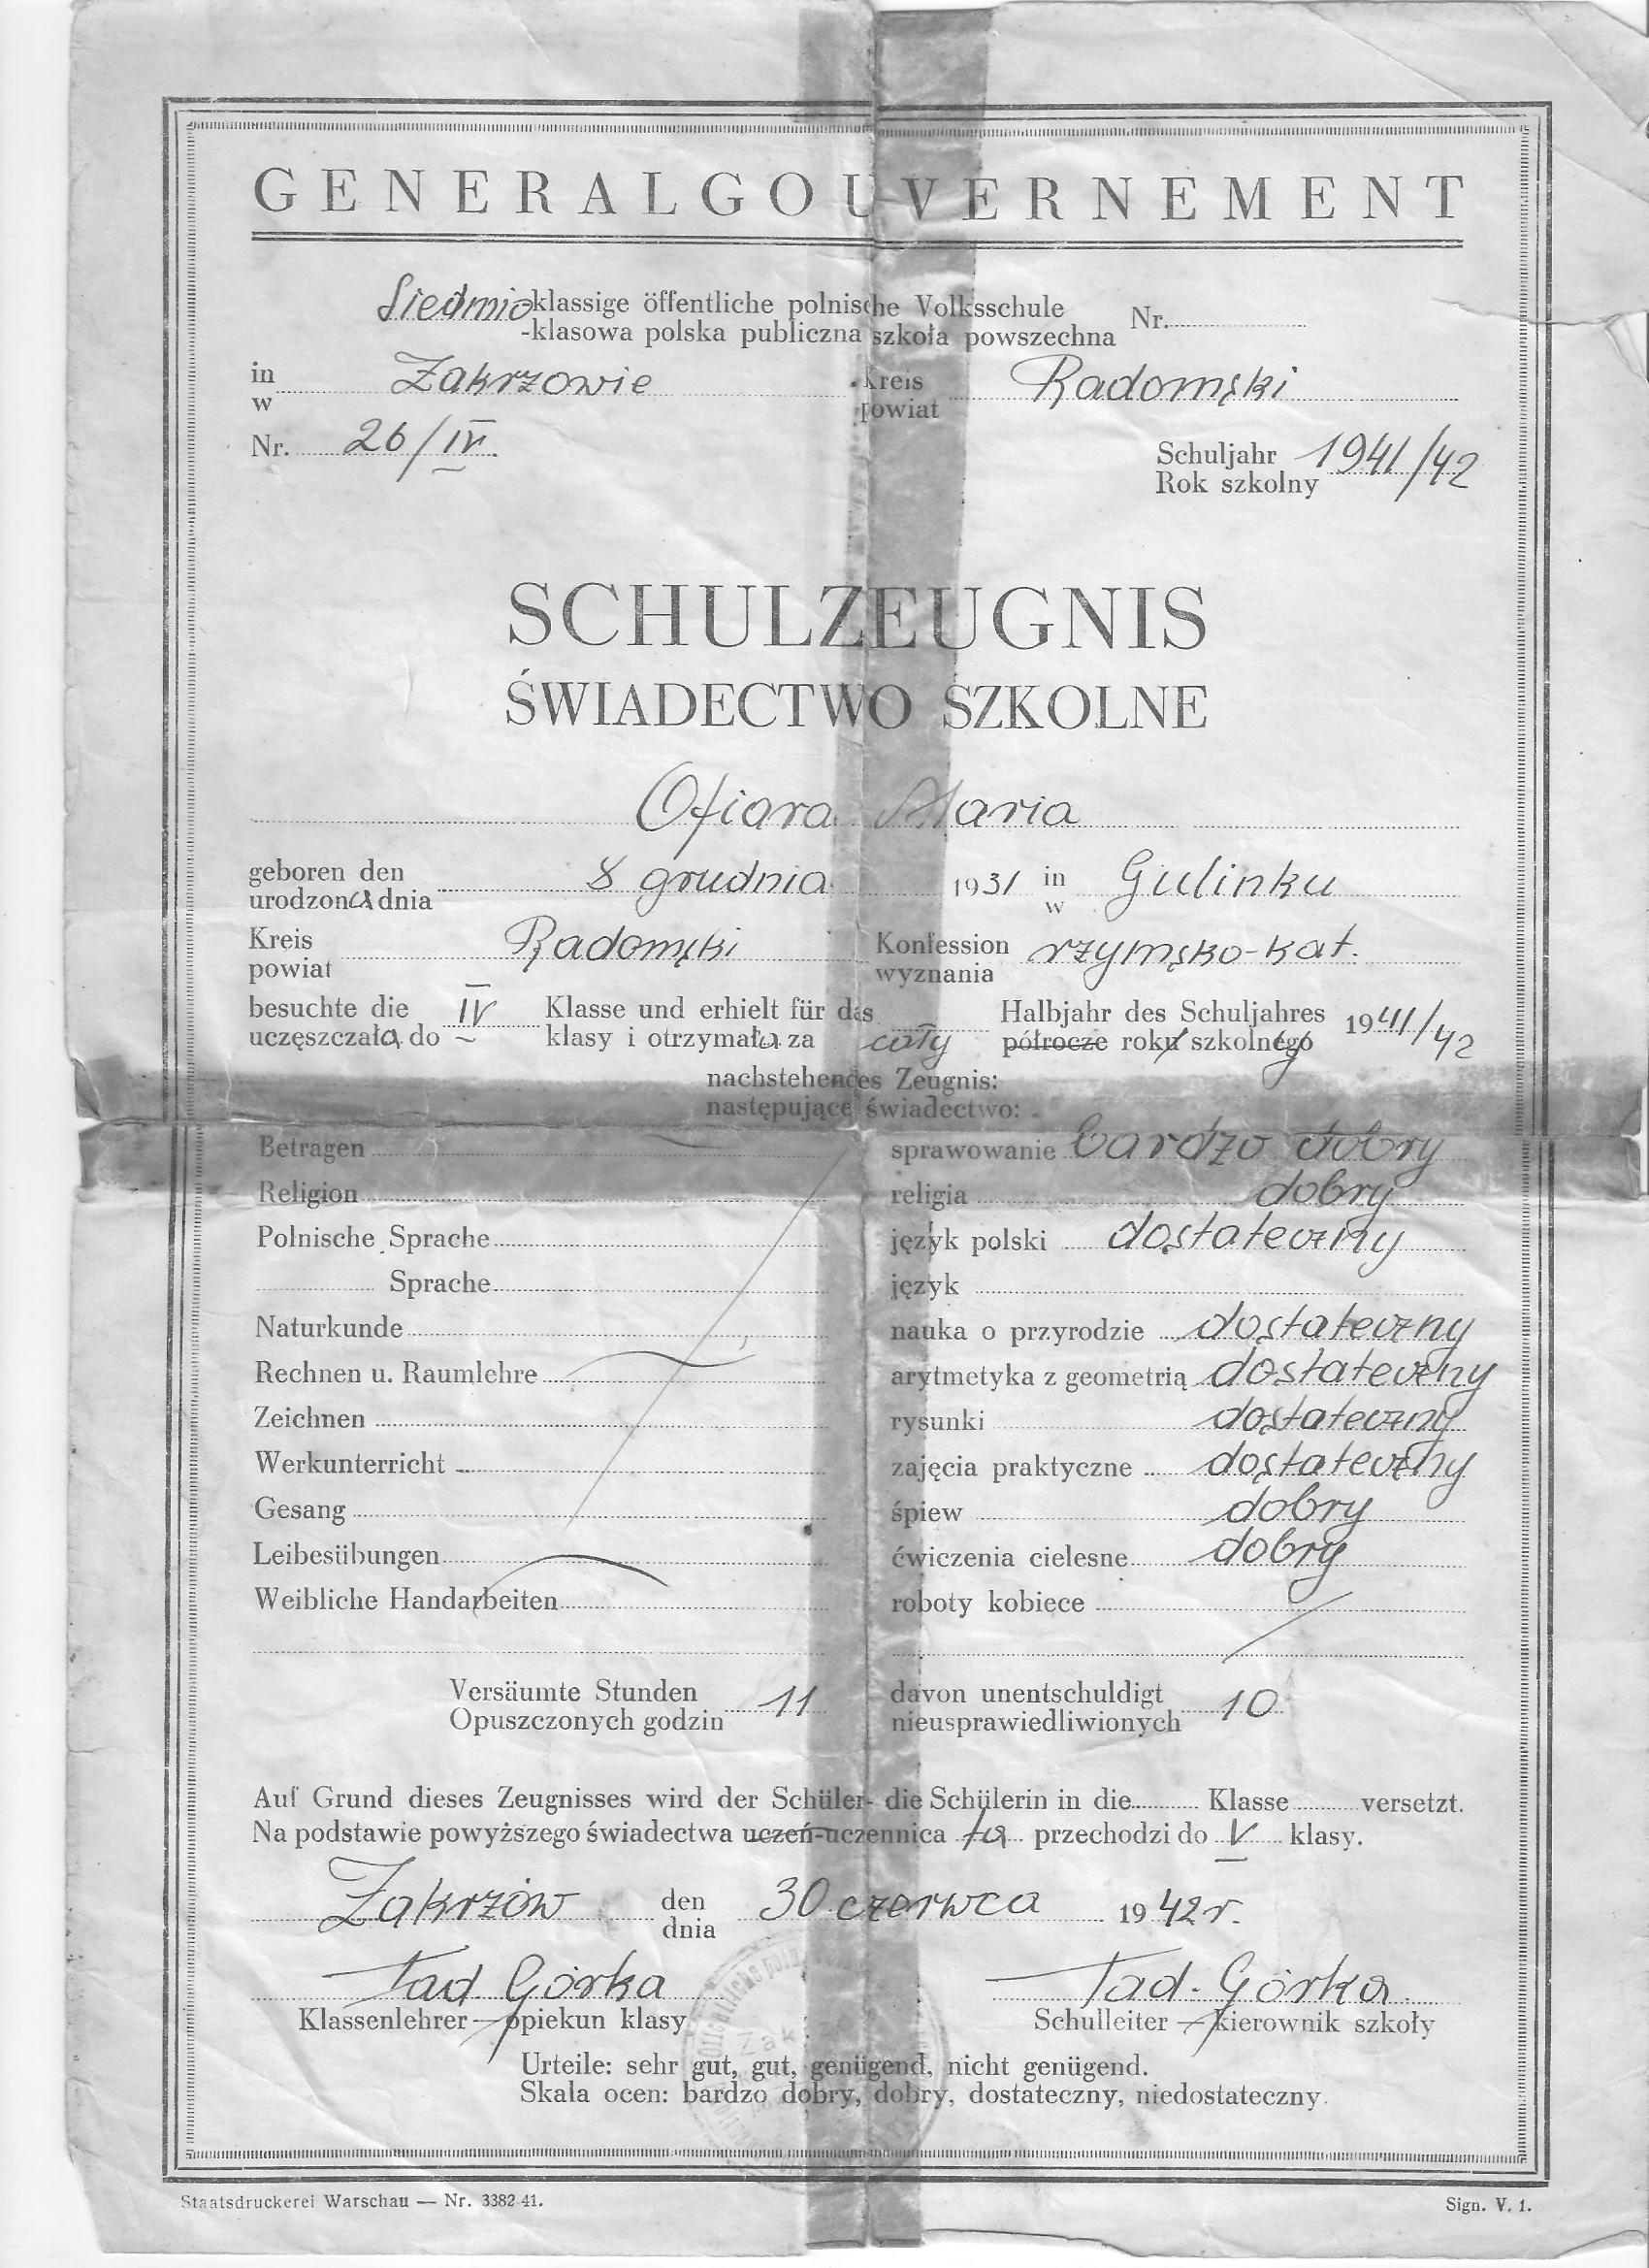 GENERALGOUVERNEMENT
Siedmioklassige öffentliche polnische Volksschule Nr.
-klasowa polska publiczna szkoła powszechna
in Zakrzowie Kreis Radomski
w powiat
Nr. 26/IV. Schuljahr 1941/42
Rok szkolny
SCHULZEUGNIS
ŚWIADECTWO SZKOLNE
Ofiara Maria
geboren den 8 grudnia 1931 in Gulinku
urodzona dnia w
Kreis Radomski Konfession rzymsko-kat.
powiat wyznania
besuchte die IV Klasse und erhielt für das Halbjahr des Schuljahres 1941/42
uczęszczała do klasy i otrzymała za cały półrocze roku szkolnego
nachstehendes Zeugnis:
następujące świadectwo:
Betragen sprawowanie bardzo dobry
Religion religia dobry
Polnische Sprache język polski dostateczny
Sprache język
Naturkunde nauka o przyrodzie dostateczny
Rechnen u. Raumlehre arytmetyka z geometrią dostateczny
Zeichnen rysunki dostateczny
Werkunterricht zajęcia praktyczne dostateczny
Gesang śpiew dobry
Leibesübungen ćwiczenia cielesne dobry
Weibliche Handarbeiten roboty kobiece
Versäumte Stunden 11 davon unentschuldigt 10
Opuszczonych godzin nieusprawiedliwionych
Auf Grund dieses Zeugnisses wird der Schüler- die Schülerin in die Klasse versetzt.
Na podstawie powyższego świadectwa uczeń-uczennica ta przechodzi do V klasy.
Zakrzów den 30 czerwca 1942 r.
dnia
Tad. Górka Tad. Górka
Klassenlehrer — opiekun klasy Schulleiter — kierownik szkoły
Urteile: sehr gut, gut, genügend, nicht genügend.
Skala ocen: bardzo dobry, dobry, dostateczny, niedostateczny.
Staatsdruckerei Warschau — Nr. 3382-41. Sign. V. 1.